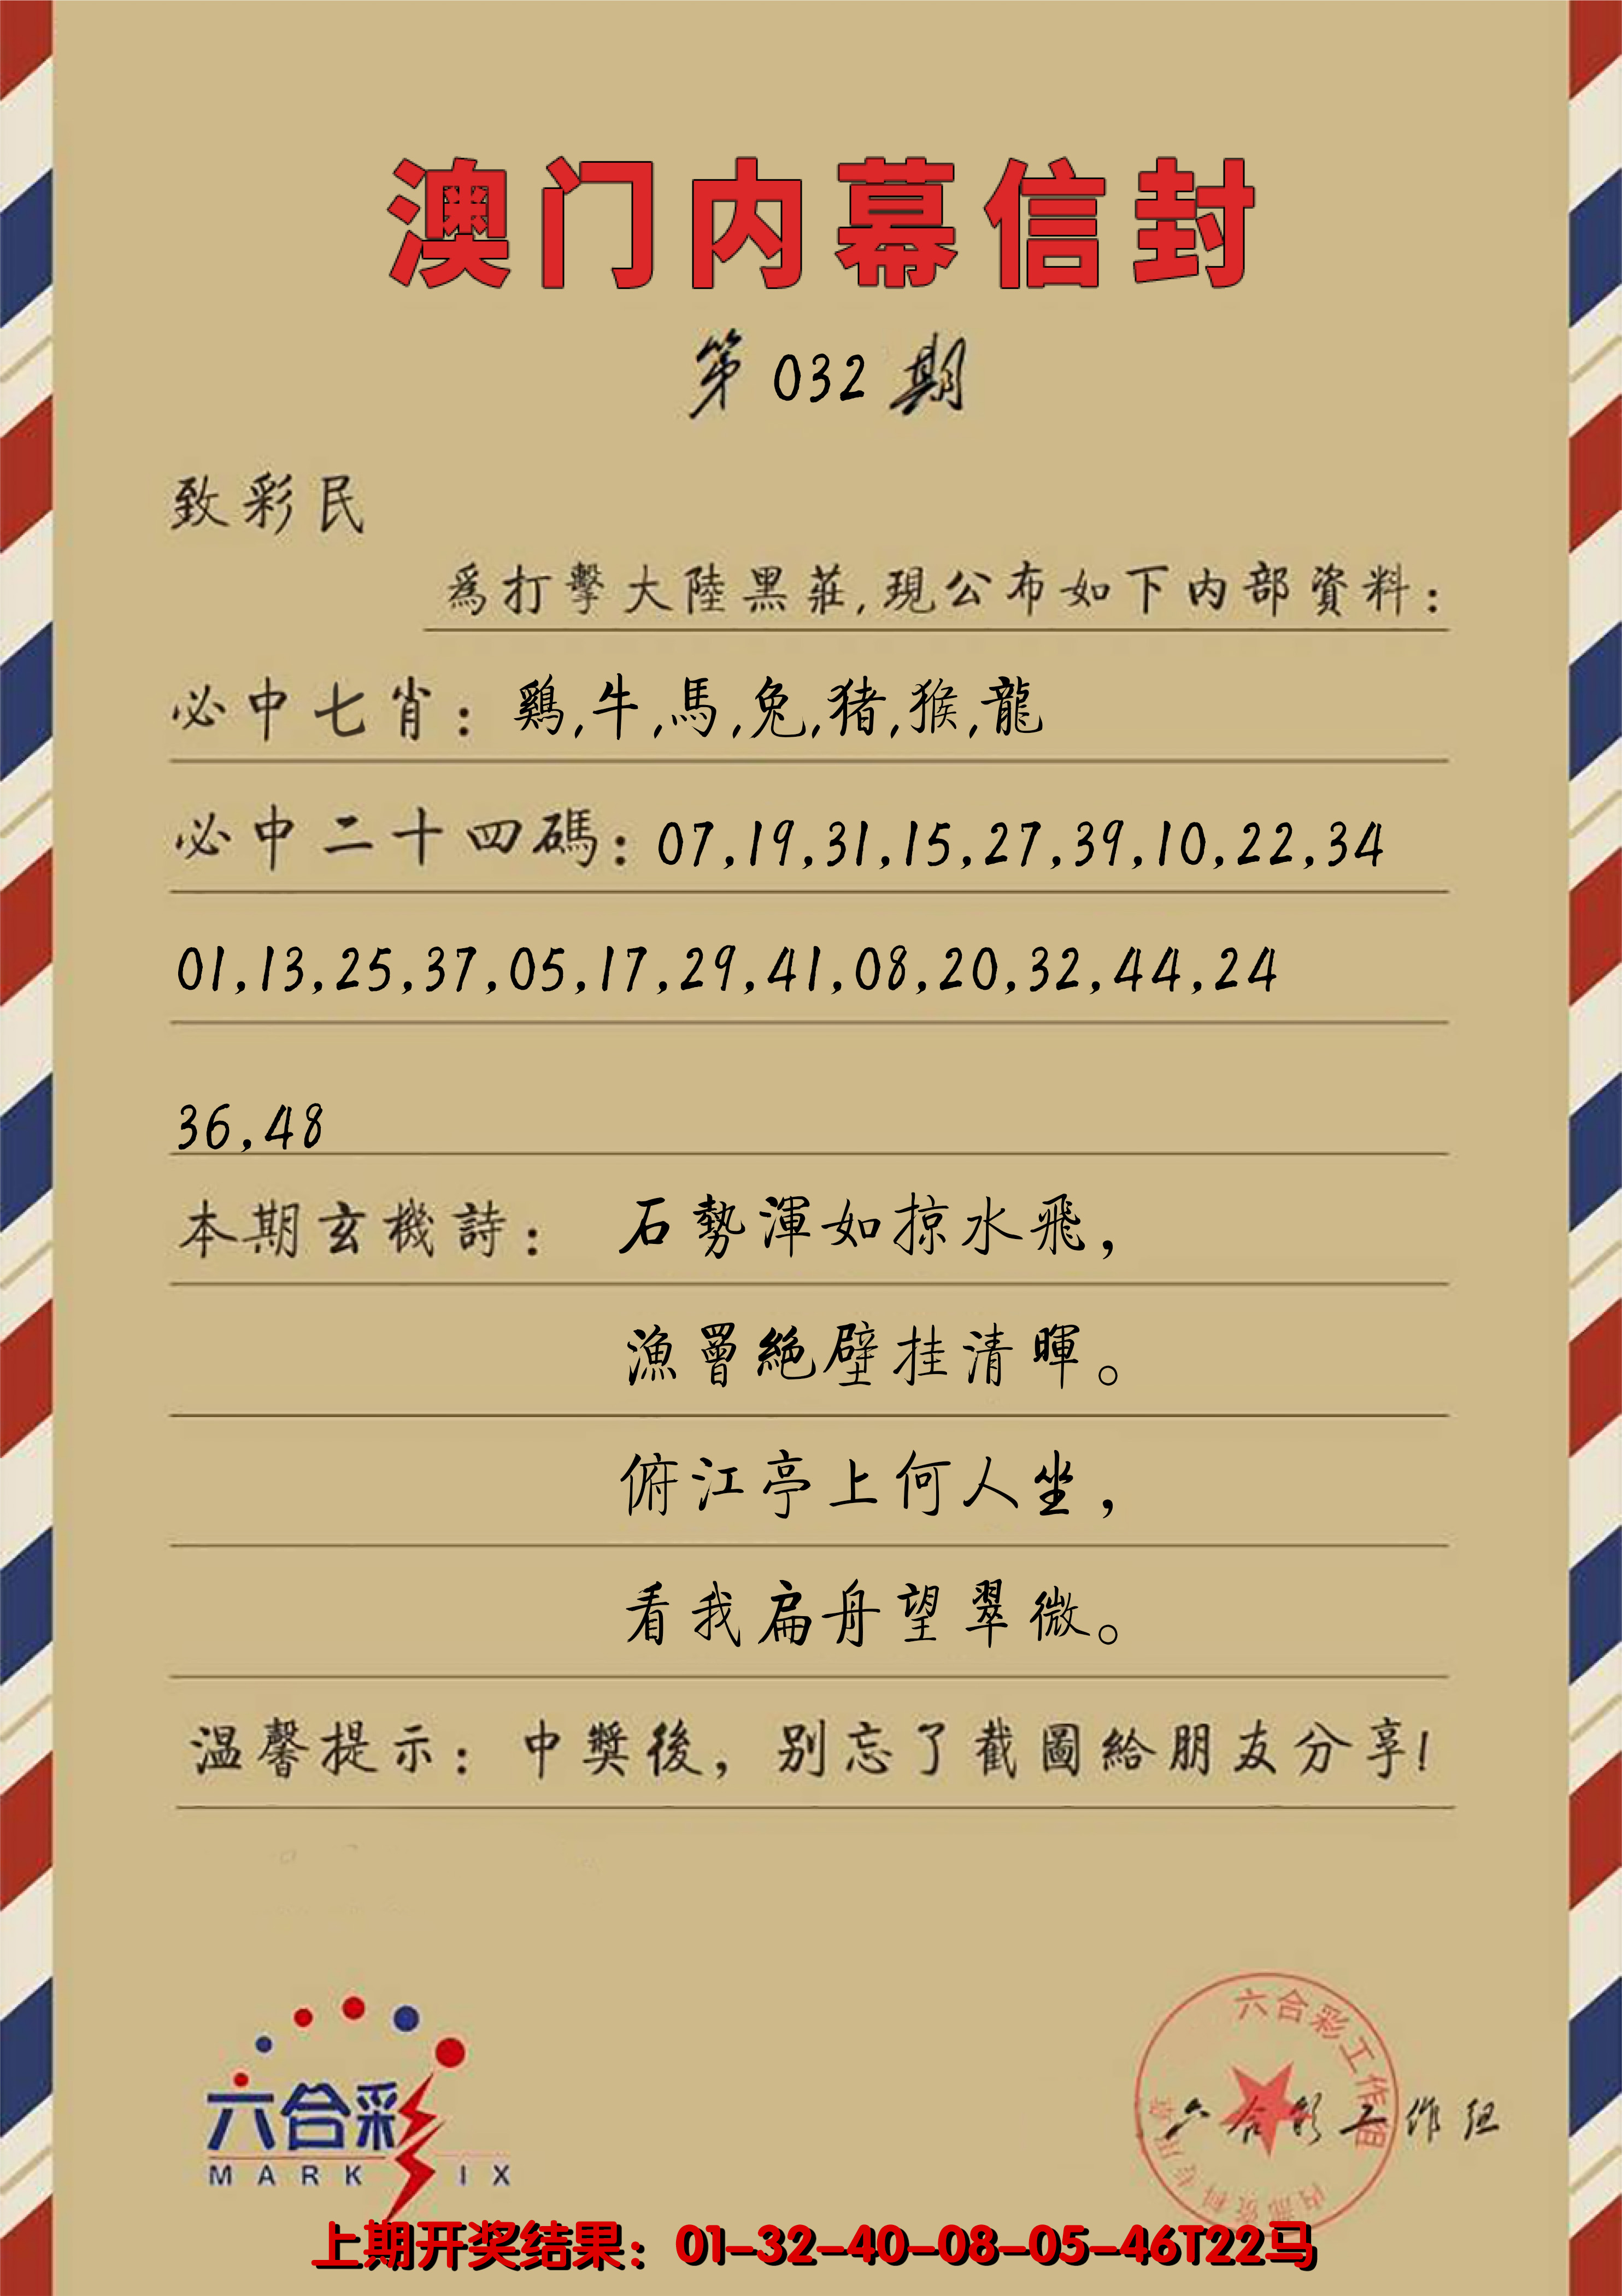 澳门内幕信封
第 032 期
致彩民
爲打擊大陸黑莊,現公布如下内部資料：
必中七肖：鷄,牛,馬,兔,猪,猴,龍
必中二十四碼：07,19,31,15,27,39,10,22,34
01,13,25,37,05,17,29,41,08,20,32,44,24
36,48
本期玄機詩： 石勢渾如掠水飛，
漁罾絕壁挂清暉。
俯江亭上何人坐，
看我扁舟望翠微。
温馨提示：中獎後，别忘了截圖給朋友分享!
六合彩
MARK IX
六合彩工作组
内部资料专用章
六合彩工作组
上期开奖结果：01-32-40-08-05-46T22马